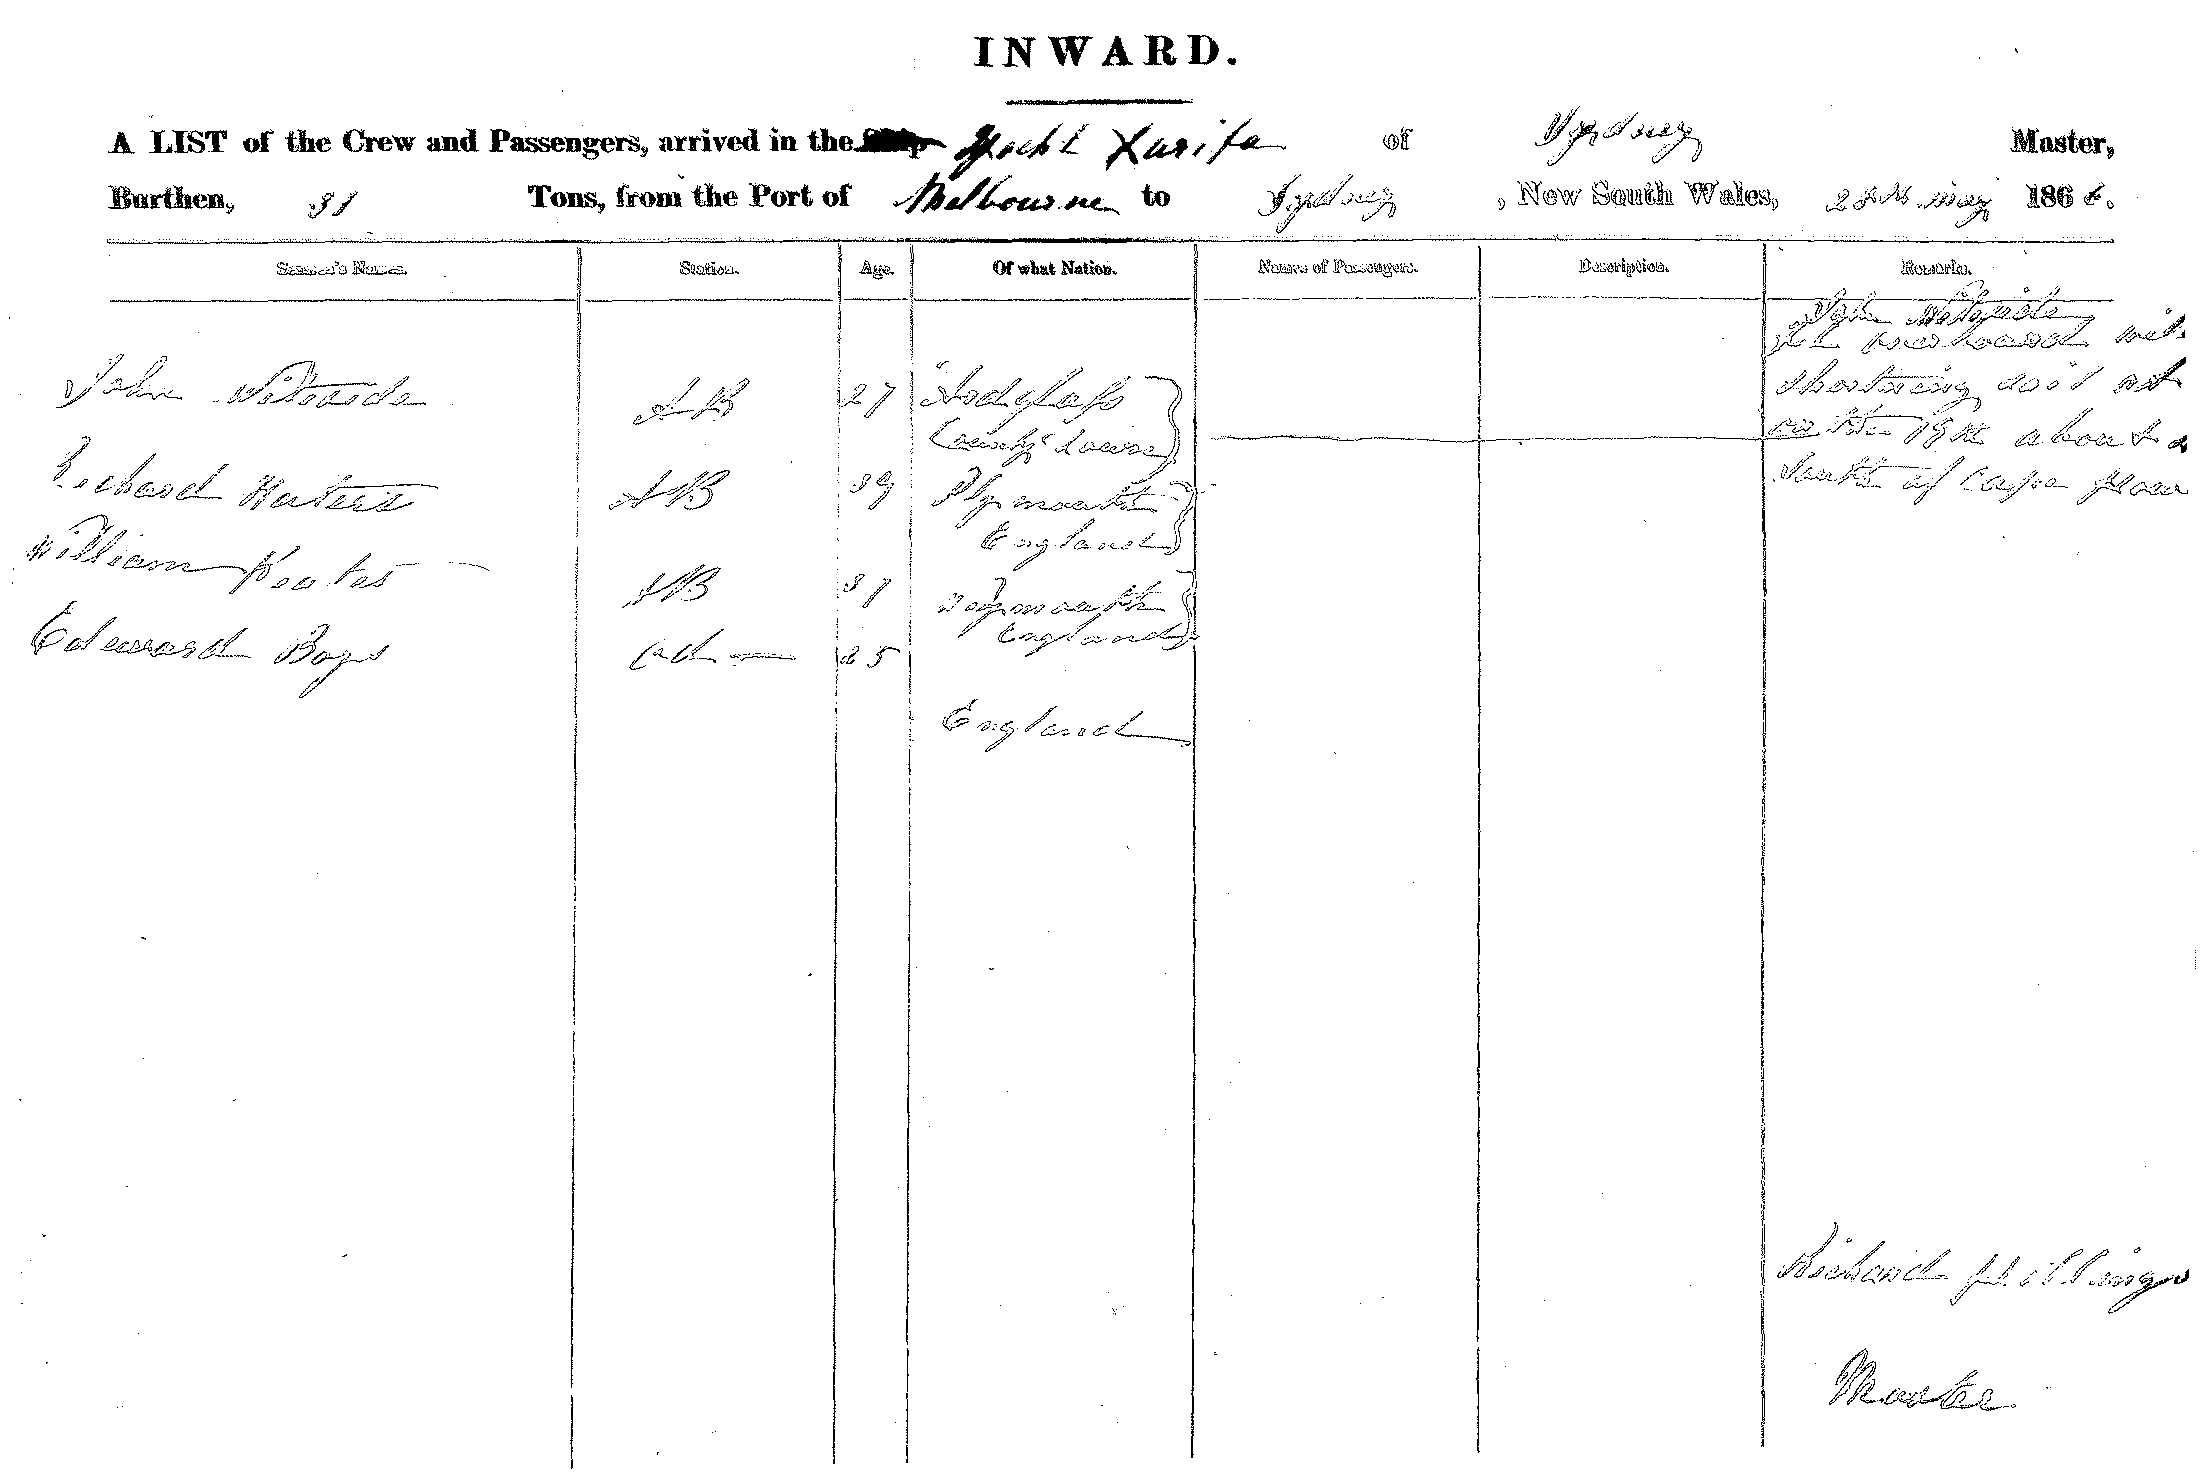 INWARD.
A LIST of the Crew and Passengers, arrived in the Yacht Xarifa of Sydney Master,
Burthen, 31 Tons, from the Port of Melbourne to Sydney, New South Wales, May 186
Seamen's Names. Station. Age. Of what Nation. Names of Passengers. Description. Remarks.
John
overboard
John AB 27 shortening sail
County Down about
Richard Waters AB 39 Plymouth South of Cape How
England
William AB 37 Weymouth
England
Edward Boys 25
England
Richard
Master